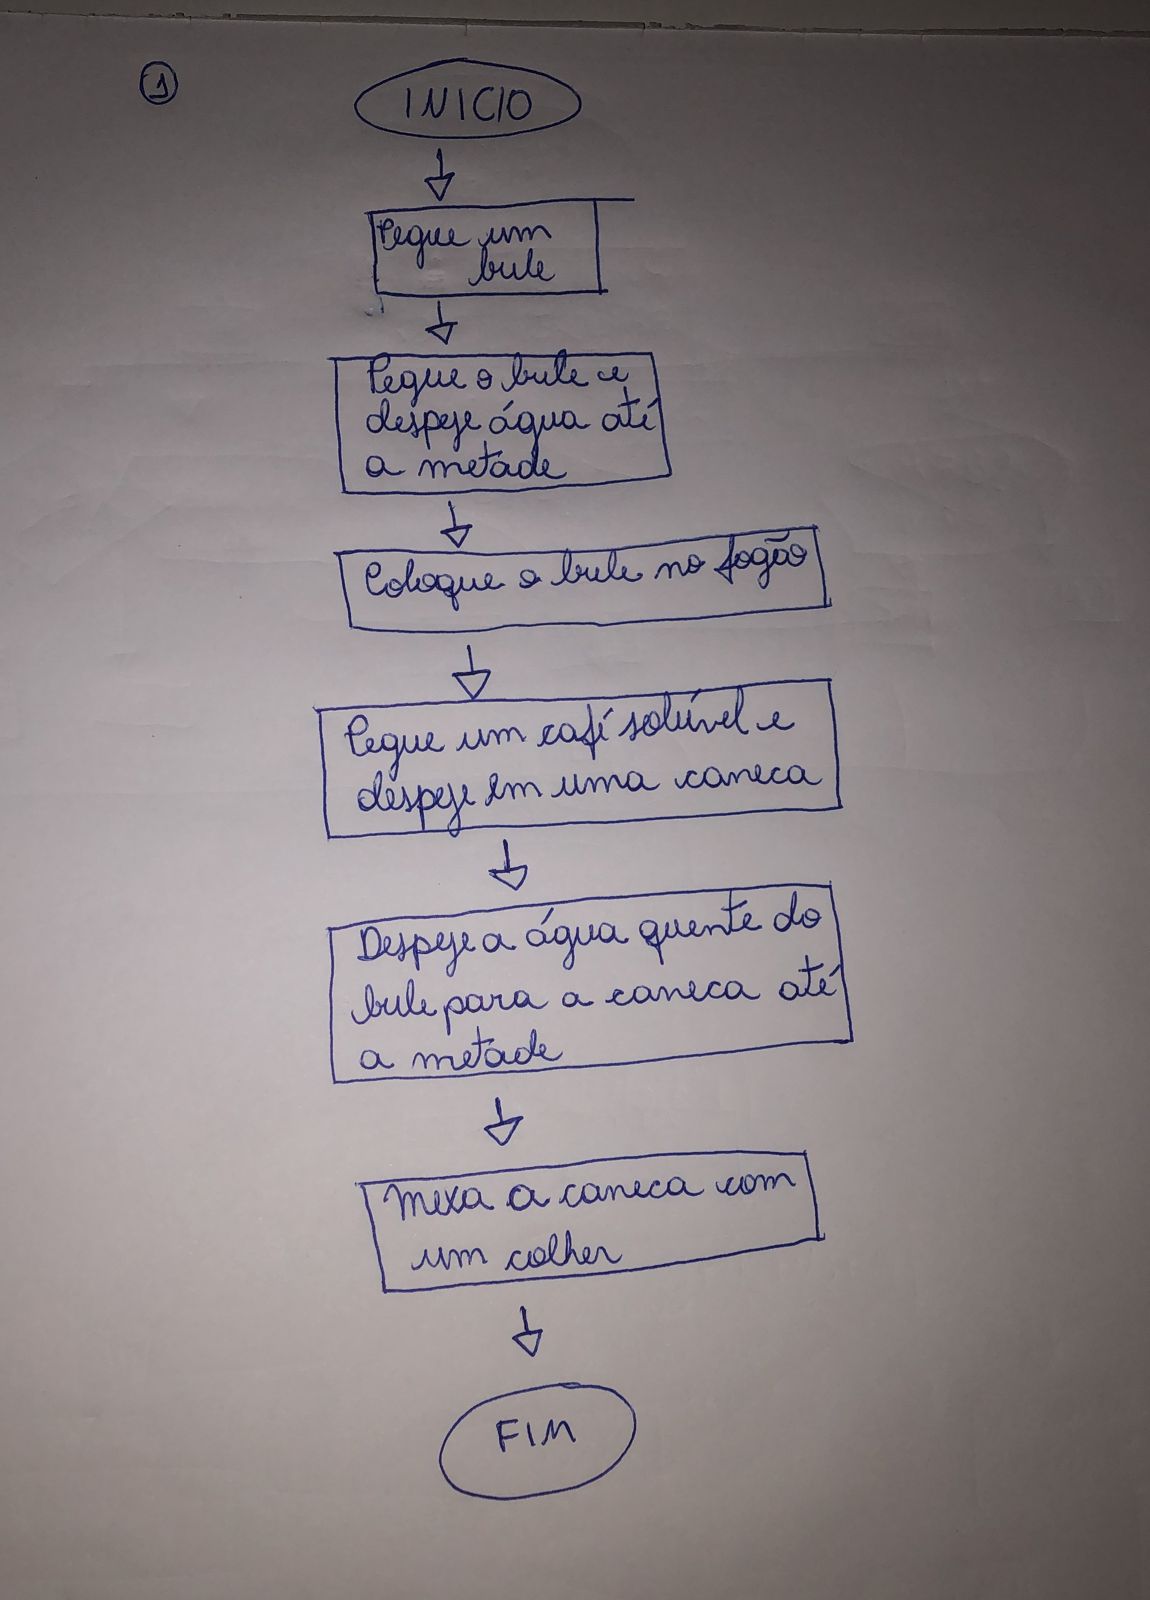 1
INICIO
Pegue um
bule
Pegue o bule e
despeje água até
a metade
Coloque o bule no fogão
Pegue um café solúvel e
despeje em uma caneca
Despeje a água quente do
bule para a caneca até
a metade
Mexa a caneca com
um colher
FIM